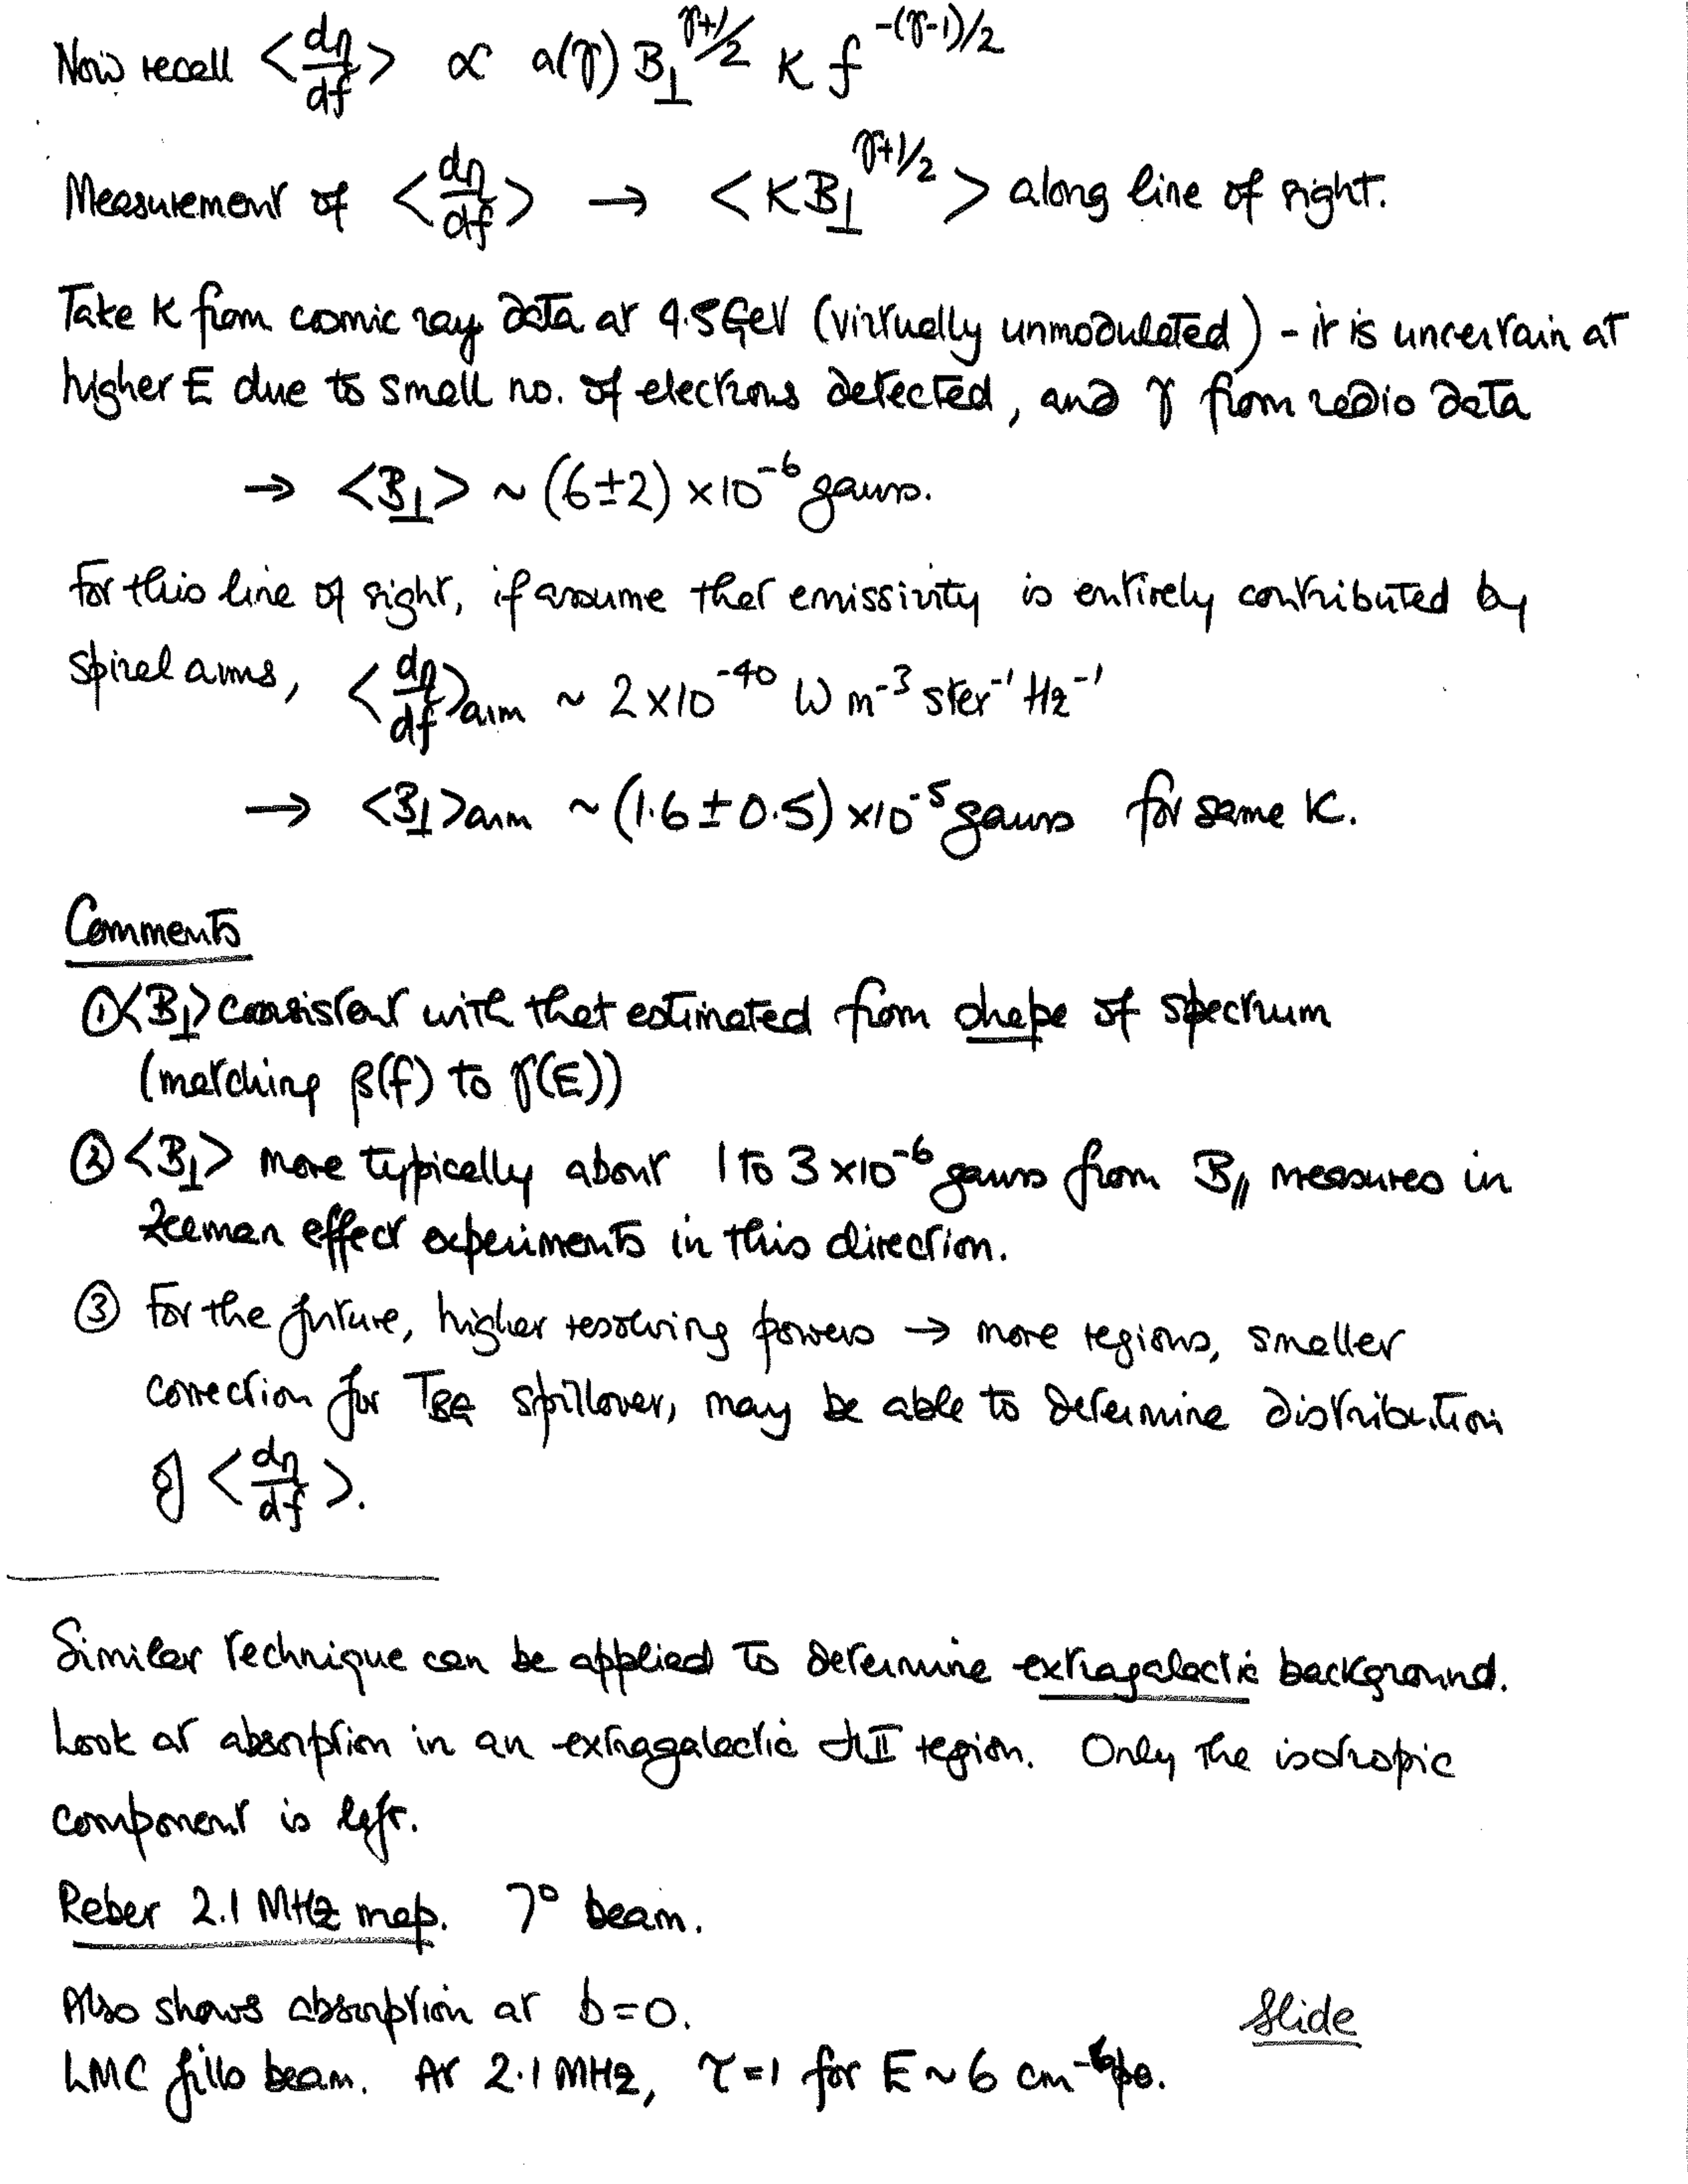 Now recall <dη/df> ∝ a(γ) B⊥^(γ+1/2) K f^(-(γ-1)/2)
Measurement of <dη/df> → <KB⊥^(γ+1/2)> along line of sight.
Take K from cosmic ray data at 4.5GeV (virtually unmodulated) - it is uncertain at
higher E due to small no. of electrons detected, and γ from radio data
→ <B⊥> ~ (6±2) ×10⁻⁶ gauss.
For this line of sight, if assume that emissivity is entirely contributed by
spiral arms, <dη/df>arm ~ 2×10⁻⁴⁰ W m⁻³ ster⁻¹ Hz⁻¹
→ <B⊥>arm ~ (1.6±0.5) ×10⁻⁵ gauss for same K.
Comments
① <B⊥> consistent with that estimated from shape of spectrum
(matching β(f) to γ(E))
② <B⊥> more typically about 1 to 3×10⁻⁶ gauss from B∥ measures in
Zeeman effect experiments in this direction.
③ For the future, higher resolving powers → more regions, smaller
correction for TBG spillover, may be able to determine distribution
of <dη/df>.
Similar technique can be applied to determine extragalactic background.
Look at absorption in an extragalactic HII region. Only the isotropic
component is left.
Reber 2.1 MHz map. 7° beam.
Also shows absorption at b=0.
Slide
LMC fills beam. At 2.1 MHz, τ=1 for E~6 cm⁻⁶pc.